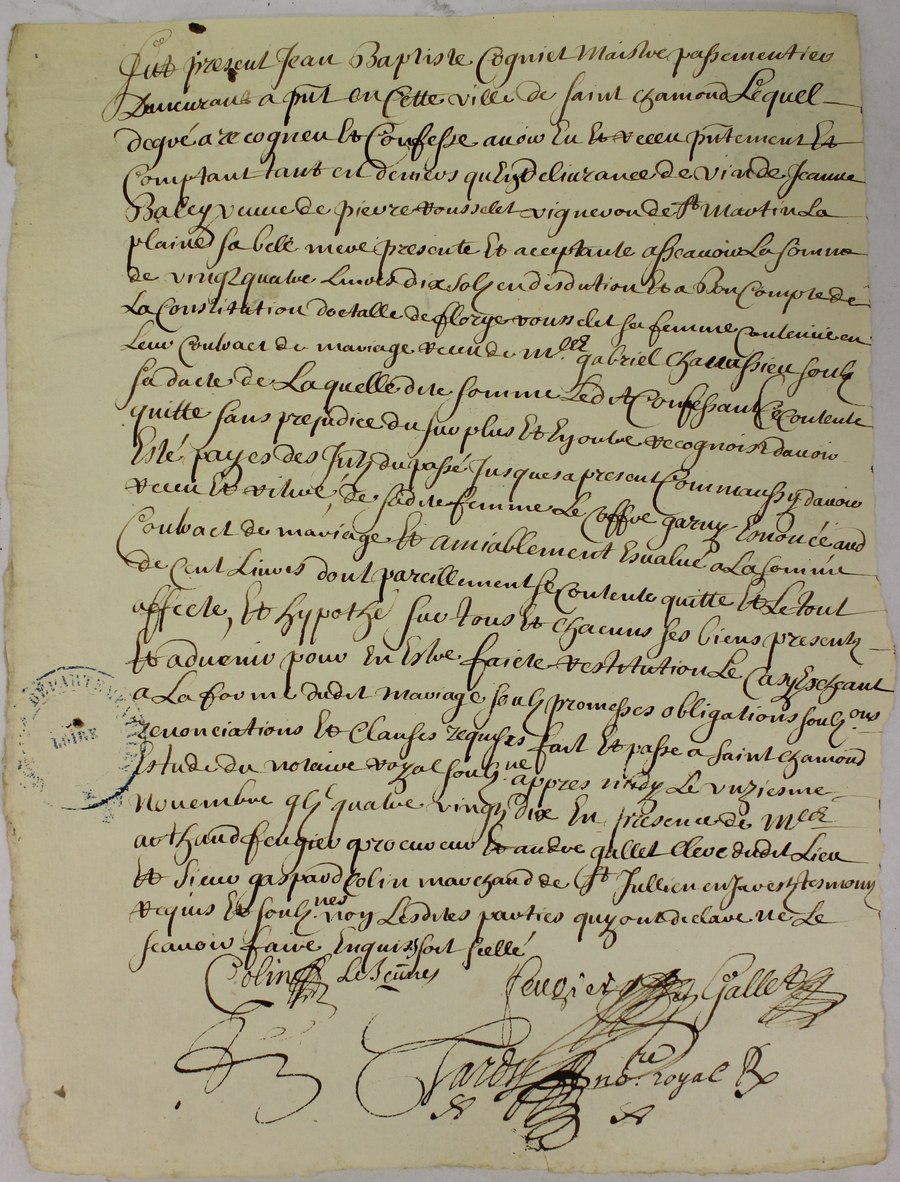 Fut present Jean Baptiste Cogniet Maistre passementier
Demeurant a pnt en Cette ville de saint chamond Lequel
degré a recogneu Et Confesse avoir Eu Et receu pntement Et
Comptant tant en deniers qu'En delivrance de vin de Jeanne
Baley veuve de pierre rousselet vigneron de St Martin La
plaine sa belle mere presente Et acceptante assavoir La somme
de vingt quatre Livres dix solz en desdution Et a Bon Compte de
La Constitution doctalle de florye rousselet sa femme Contenue en
Leur Contract de mariage receu de Mre gabriel Chavassieu soubz
sa dacte de Laquelle dite somme Ledit Confessant Se Contente
quitte sans prejudice du sur plus Et En outre recognoist davoir
Esté payes des Jntz du passé Jusques a present Comm aussy davoir
receu Et retiré de sadite femme Le coffre garny Enoncé aud
Contract de mariage Et amiablement Esvalué a La somme
de Cent Livres dont pareillement se Contente quitte Et Le tout
affecte, Et hypothé sur tous Et chacuns ses biens presentz
Et advenir pour En Estre faicte restitution Le Cas Escheant
a La forme dudit mariage soubz promesses obligations soubz.ons
renonciations Et Clauses requises fait Et passe a saint chamond
Estude du notaire royal soubz.ne appres midy Le unziesme
Novembre gbz quatre vingtz dix En presence de Mre
arthaud feugier procureur Et andre gallet Clerc dudit Lieu
Et sieur gaspard Colin marchand de St Jullien en Jarest tesmoins
requis Et soubz.nes non Lesdites parties quy ont declaré ne Le
scavoir faire Enquis soit scellé
Colin Le Jeunes
feugier Gallet
Tardy no.re royal
DEPARTEMENT
LOIRE